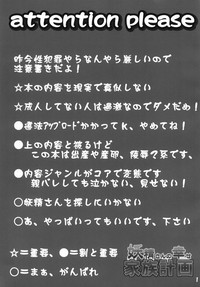 attention please
昨今性犯罪やらなんやら厳しいので
注意書きだよ!
☆本の内容を現実で真似しない
☆成人してない人は過激なのでダメだめ!
●違法アップロードかかってK、やめてね!
●上の内容と被るけど
この本は出産や産卵、陵辱マ本です、
●内容ジャンルがコアで変態です
親バレしても泣かない、見せない!
○妖精さんを探しにいかない
○あ、やっぱいってもいいです、下さい
☆=重要、●=割と重要
○=まぁ、がんばれ
家族計画
1